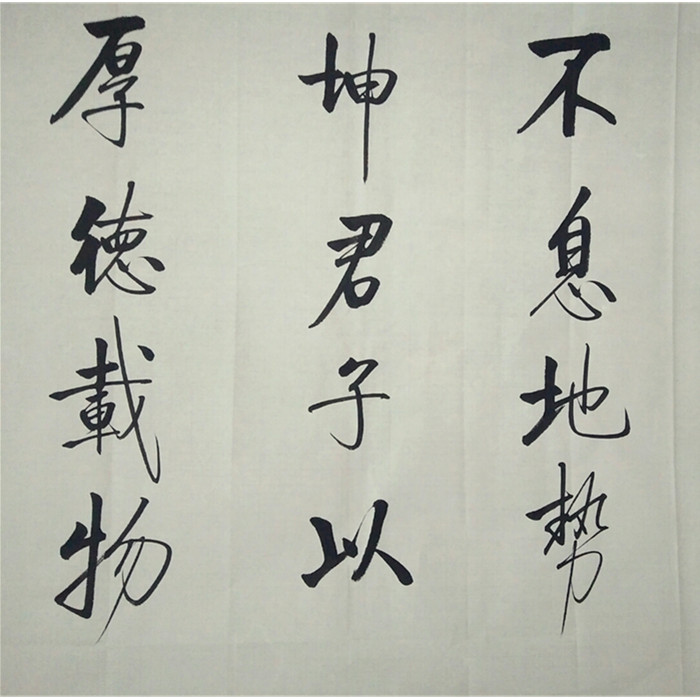 不息地势
坤君子以
厚德載物